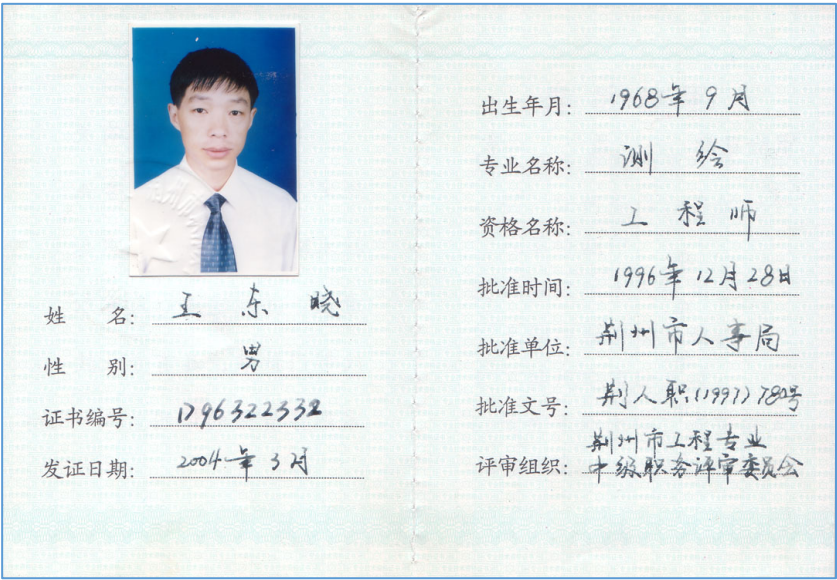 姓 名: 王东晓
性 别: 男
证书编号: 1796322332
发证日期: 2004年3月
出生年月: 1968年9月
专业名称: 测绘
资格名称: 工程师
批准时间: 1996年12月28日
批准单位: 荆州市人事局
批准文号: 荆人职(1997)78号
评审组织: 荆州市工程专业
中级职务评审委员会